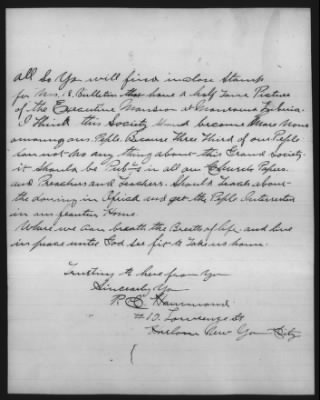 all So Yo will find inclose Stamp
for No. 8. Bulletin that have a half Tone Picture
of the Executive Mansion at Monrovia Liberia.
I Think this Society Should become More None
among our Peple. Because three Third of our Peple
dan not No any thing about this Grand Society.
it should be Pub-d in all our Church Papers.
and Preachers and Teachers. Should Teach about
the doing in Africa and get the Peple Interested
in our Home.
Where we Can breath the Breath of life. and live
in peace until God see fit to Take us home.
Trusting to here from Yo
Sincerely Yo
P. E. Hammond
#13. Lawrence St
Harlem New York City